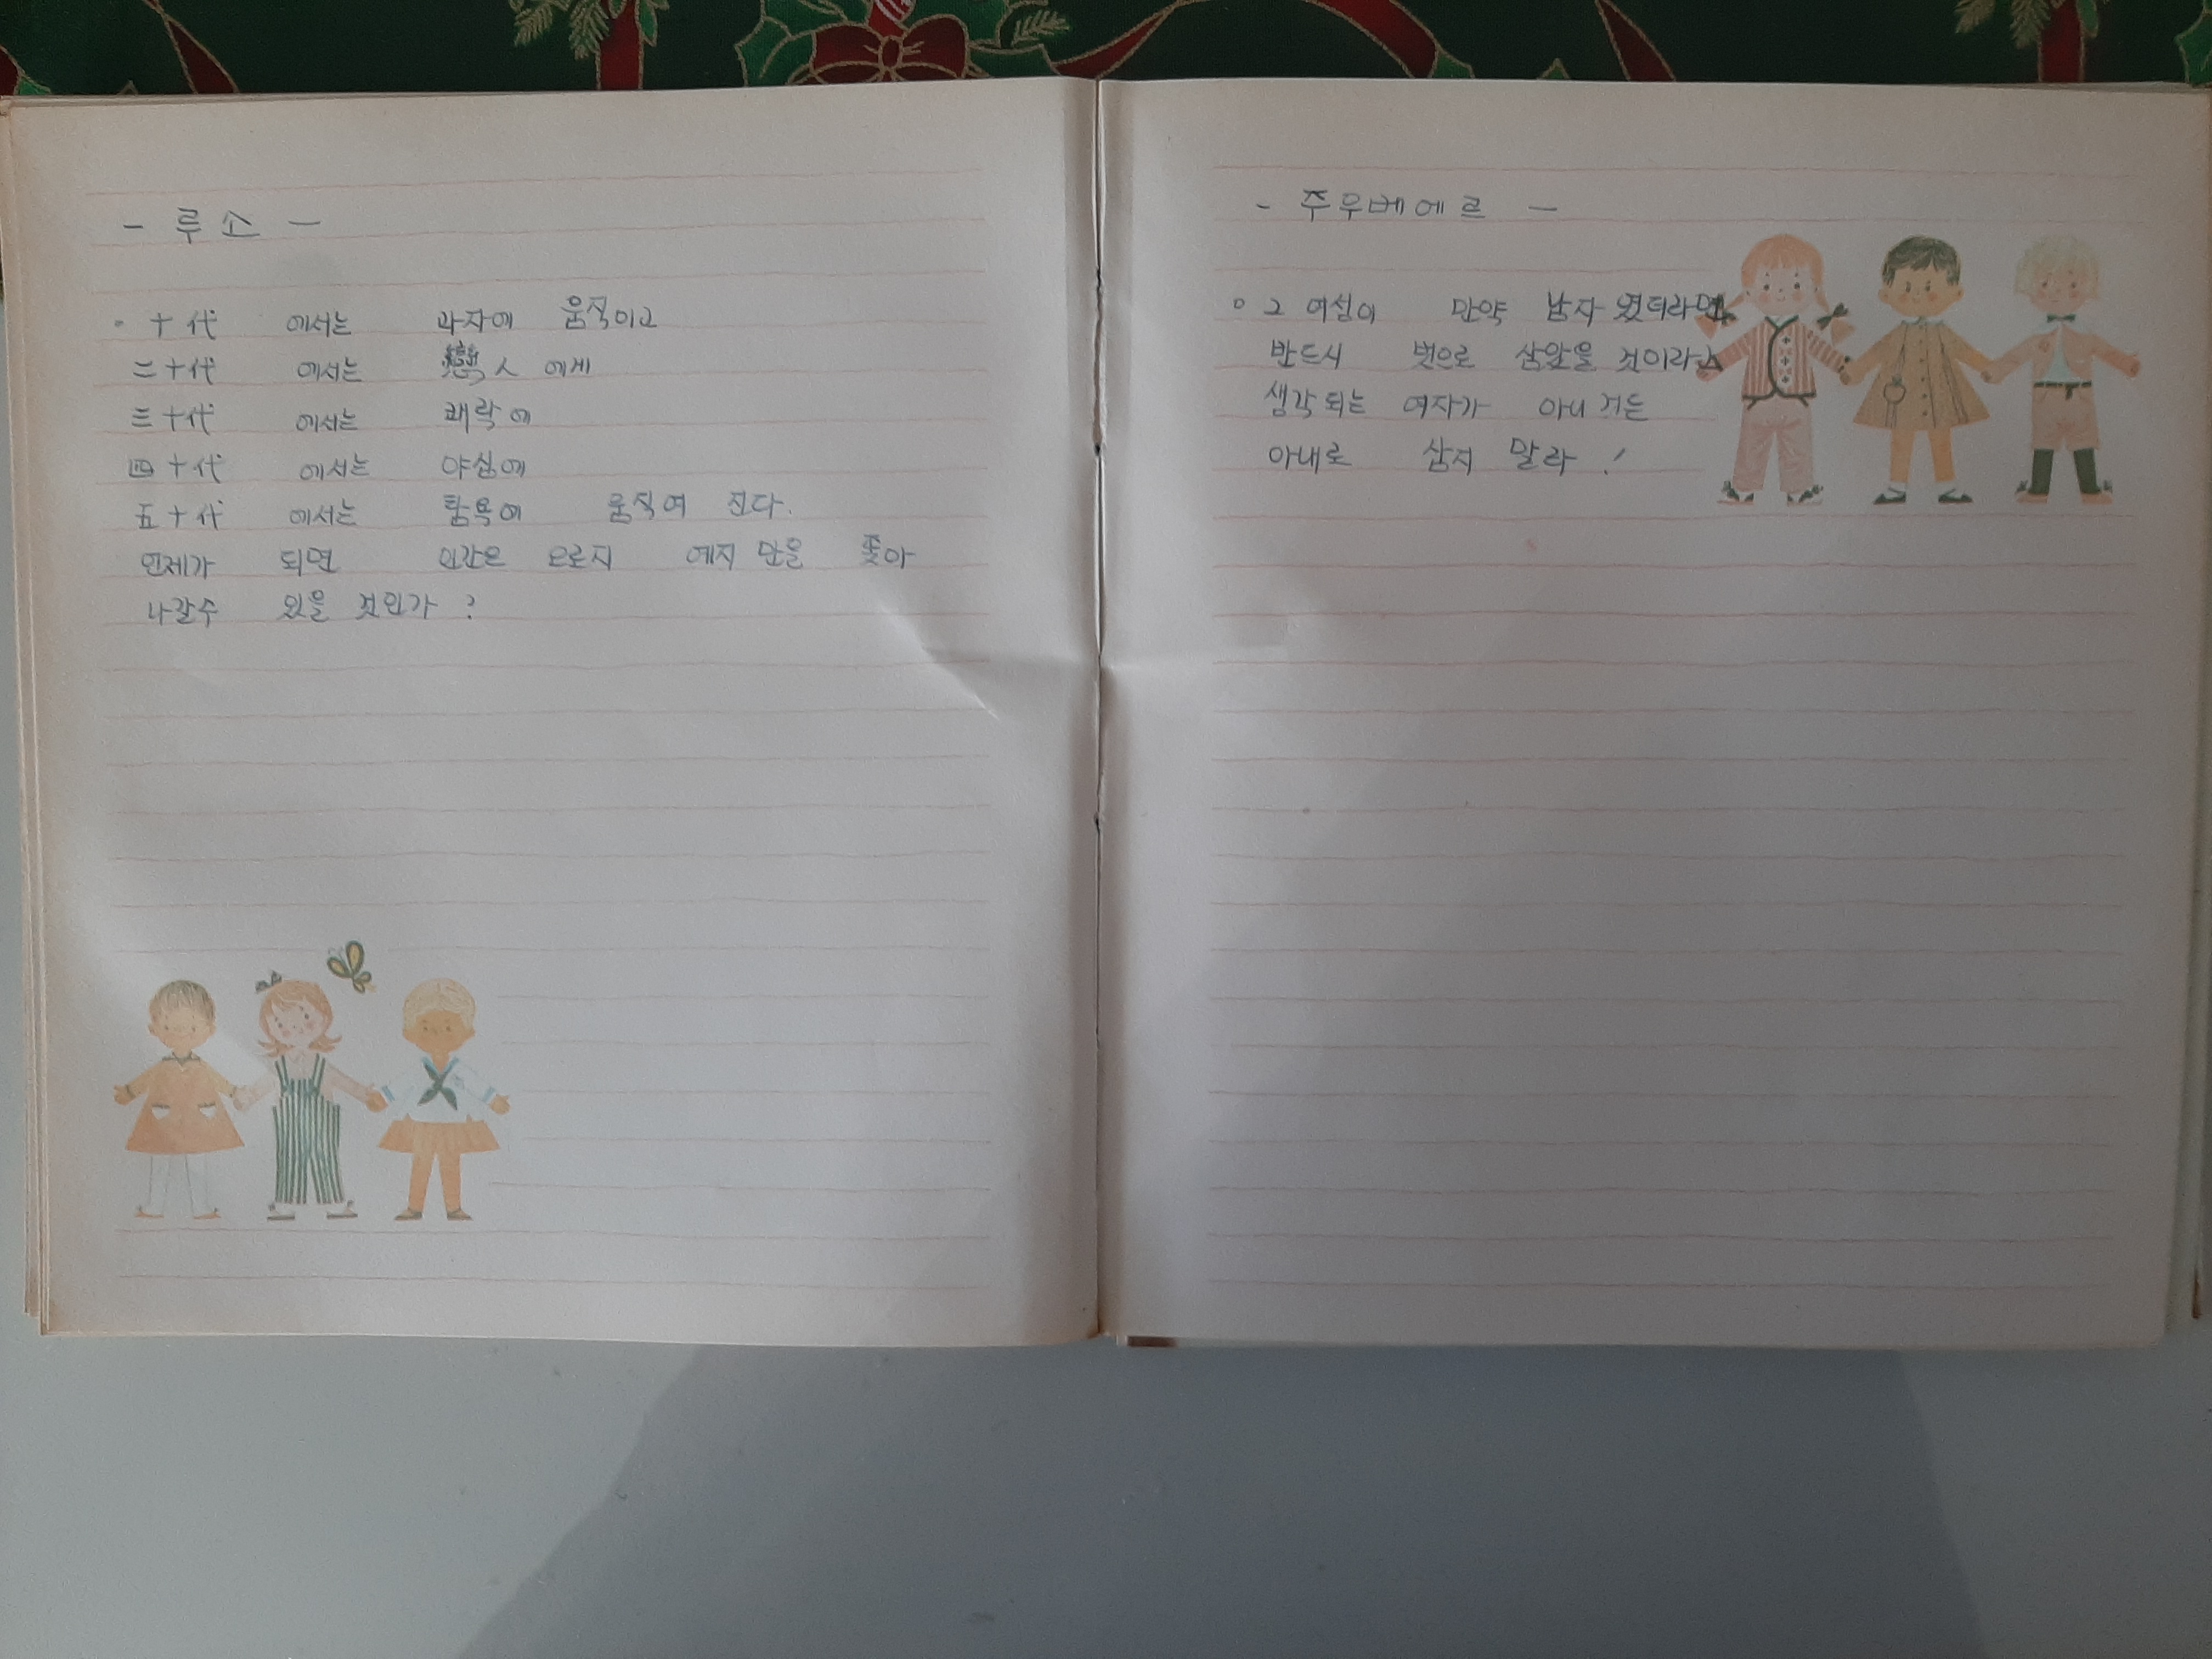 - 루소 -
◦ 十代 에서는 과자에 움직이고
二十代 에서는 戀人 에게
三十代 에서는 쾌락에
四十代 에서는 야심에
五十代 에서는 탐욕에 움직여 진다.
언제가 되면 인간은 오로지 예지 만을 좇아
나갈수 있을 것인가 ?
- 주우베에르 -
◦ 그 여성이 만약 남자 였더라면
반드시 벗으로 삼았을 것이라고
생각되는 여자가 아니 거든
아내로 삼지 말라 !